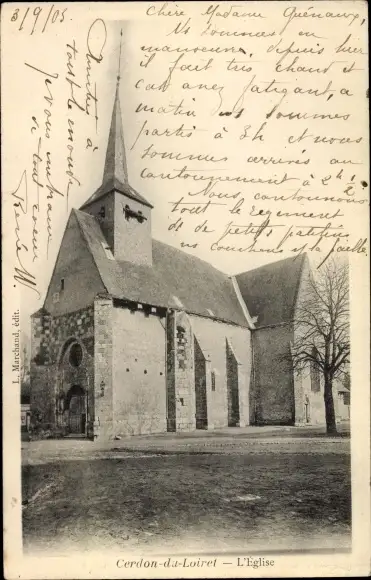 3/9/05
Chère Madame Guénaux,
Ns sommes en
manœuvre, depuis hier
il fait très chaud et
cas assez fatigant, a
matin ns sommes
partis à 3h et nous
sommes arrivés au
cantonnement à 2h½
Nous cantonnons
tout le regiment
ds de petits patelins
ns couchons s la paille.
Amitiés à
tout le monde
Je vous embrasse
de tout cœur
L. Marchand, édit.
Cerdon-du-Loiret — L'Eglise